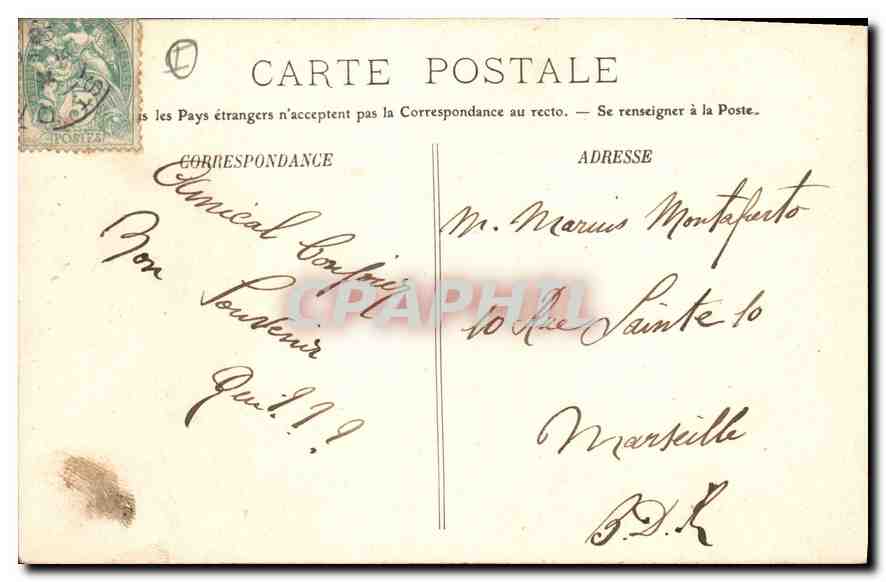 CARTE POSTALE
s les Pays étrangers n'acceptent pas la Correspondance au recto. — Se renseigner à la Poste.
CORRESPONDANCE
Amical Bonjour
Bon Souvenir
Qui???
ADRESSE
M. Marius Montaferto
10 Rue Sainte 10
Marseille
B.D.R
POSTES
CPAPHIL